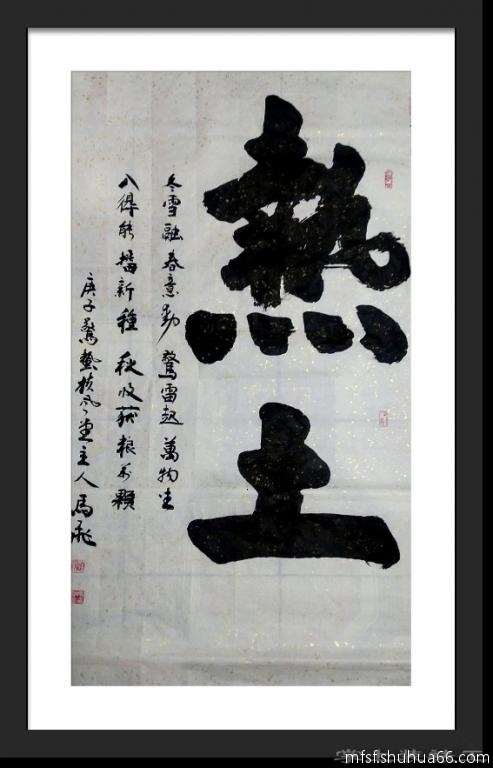 熱土
冬雪融春意動 驚雷起萬物生
得能播新種 秋收获粮万顆
庚子驚蟄 主人馬飛
mfsf.shuhua66.com